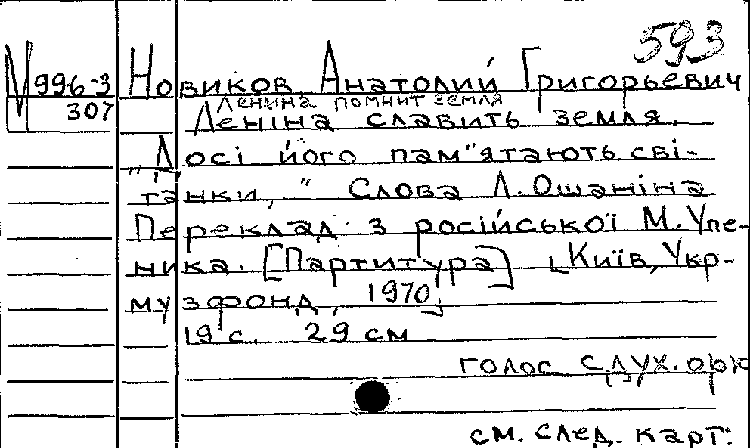 593
М 996-3
307
Новиков, Анатолий Григорьевич
Ленина помнит земля
Леніна славить земля.
„Досі його пам"ятають сві-
танки," Слова Л. Ошаніна
Переклад з російської М. Упе-
ника. [Партитура] [Київ, Укр-
музфонд, 1970]
19 с. 29 см
голос с дух. орк
см. след. карт.